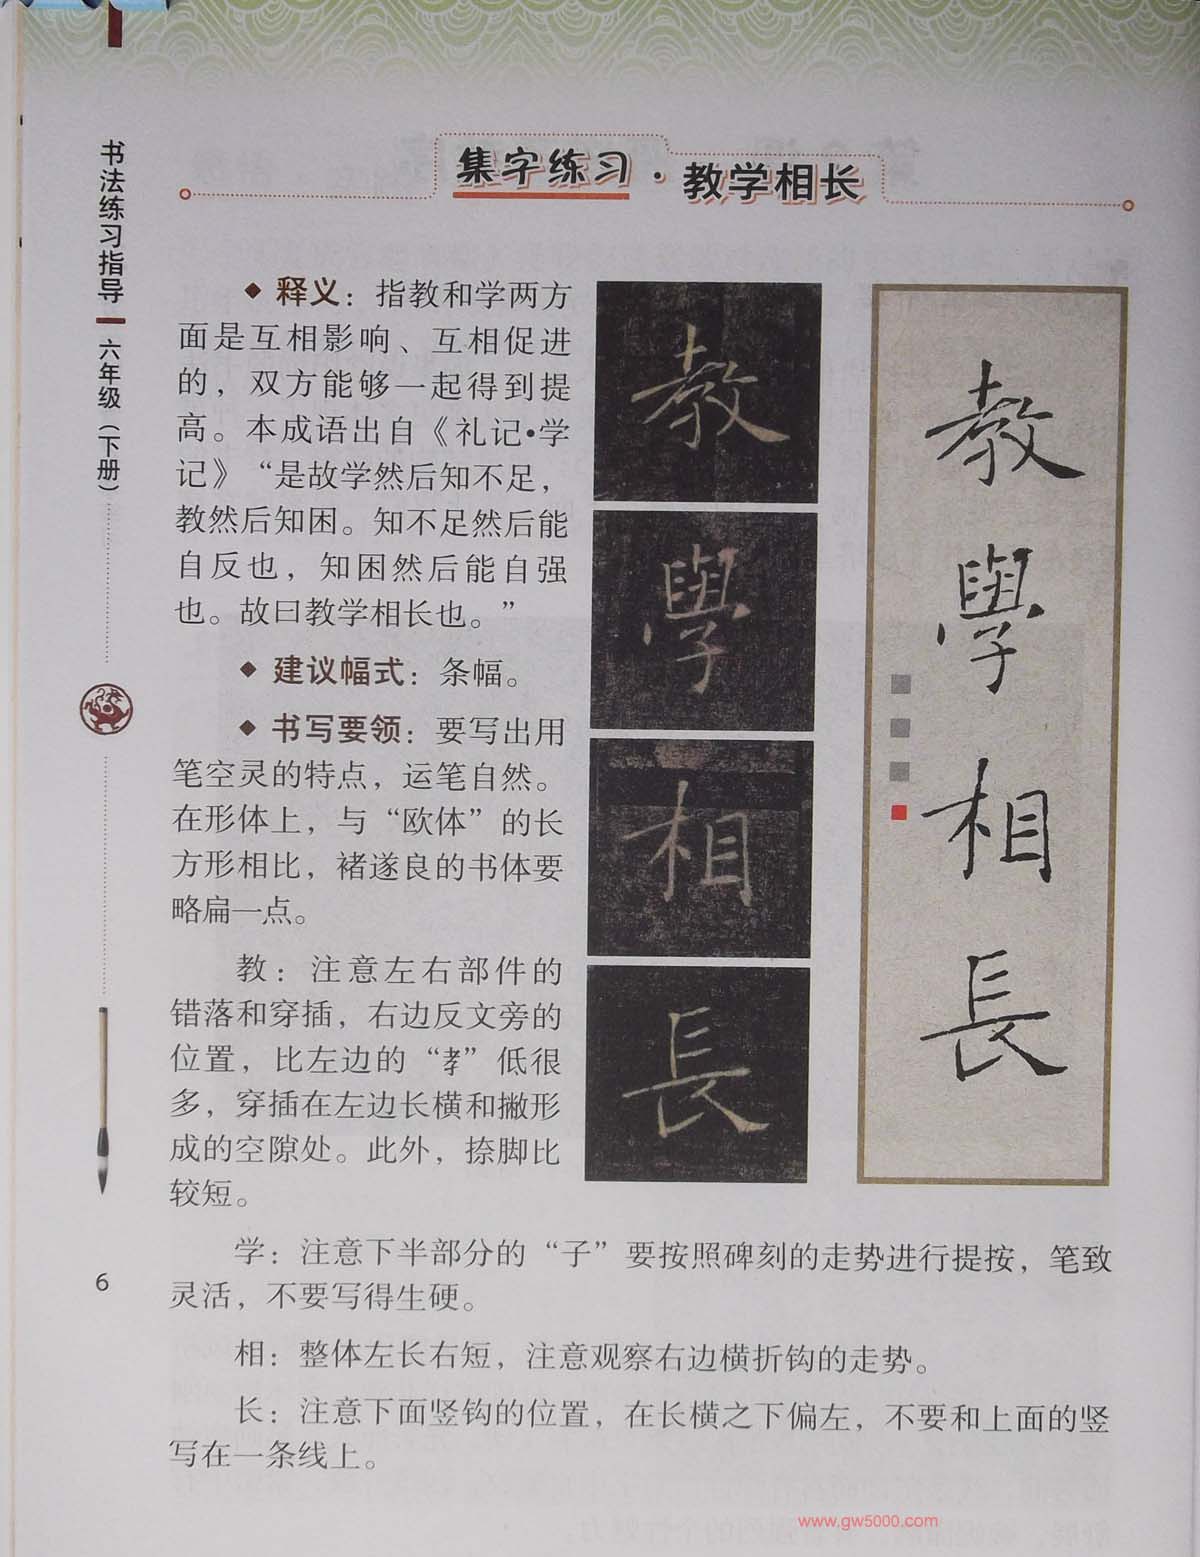 书法练习指导
六年级（下册）
6
集字练习·教学相长
◆ 释义：指教和学两方
面是互相影响、互相促进
的，双方能够一起得到提
高。本成语出自《礼记•学
记》“是故学然后知不足，
教然后知困。知不足然后能
自反也，知困然后能自强
也。故曰教学相长也。”
◆ 建议幅式：条幅。
◆ 书写要领：要写出用
笔空灵的特点，运笔自然。
在形体上，与“欧体”的长
方形相比，褚遂良的书体要
略扁一点。
教：注意左右部件的
错落和穿插，右边反文旁的
位置，比左边的“孝”低很
多，穿插在左边长横和撇形
成的空隙处。此外，捺脚比
较短。
教
學
相
長
教
學
相
長
学：注意下半部分的“子”要按照碑刻的走势进行提按，笔致
灵活，不要写得生硬。
相：整体左长右短，注意观察右边横折钩的走势。
长：注意下面竖钩的位置，在长横之下偏左，不要和上面的竖
写在一条线上。
www.gw5000.com